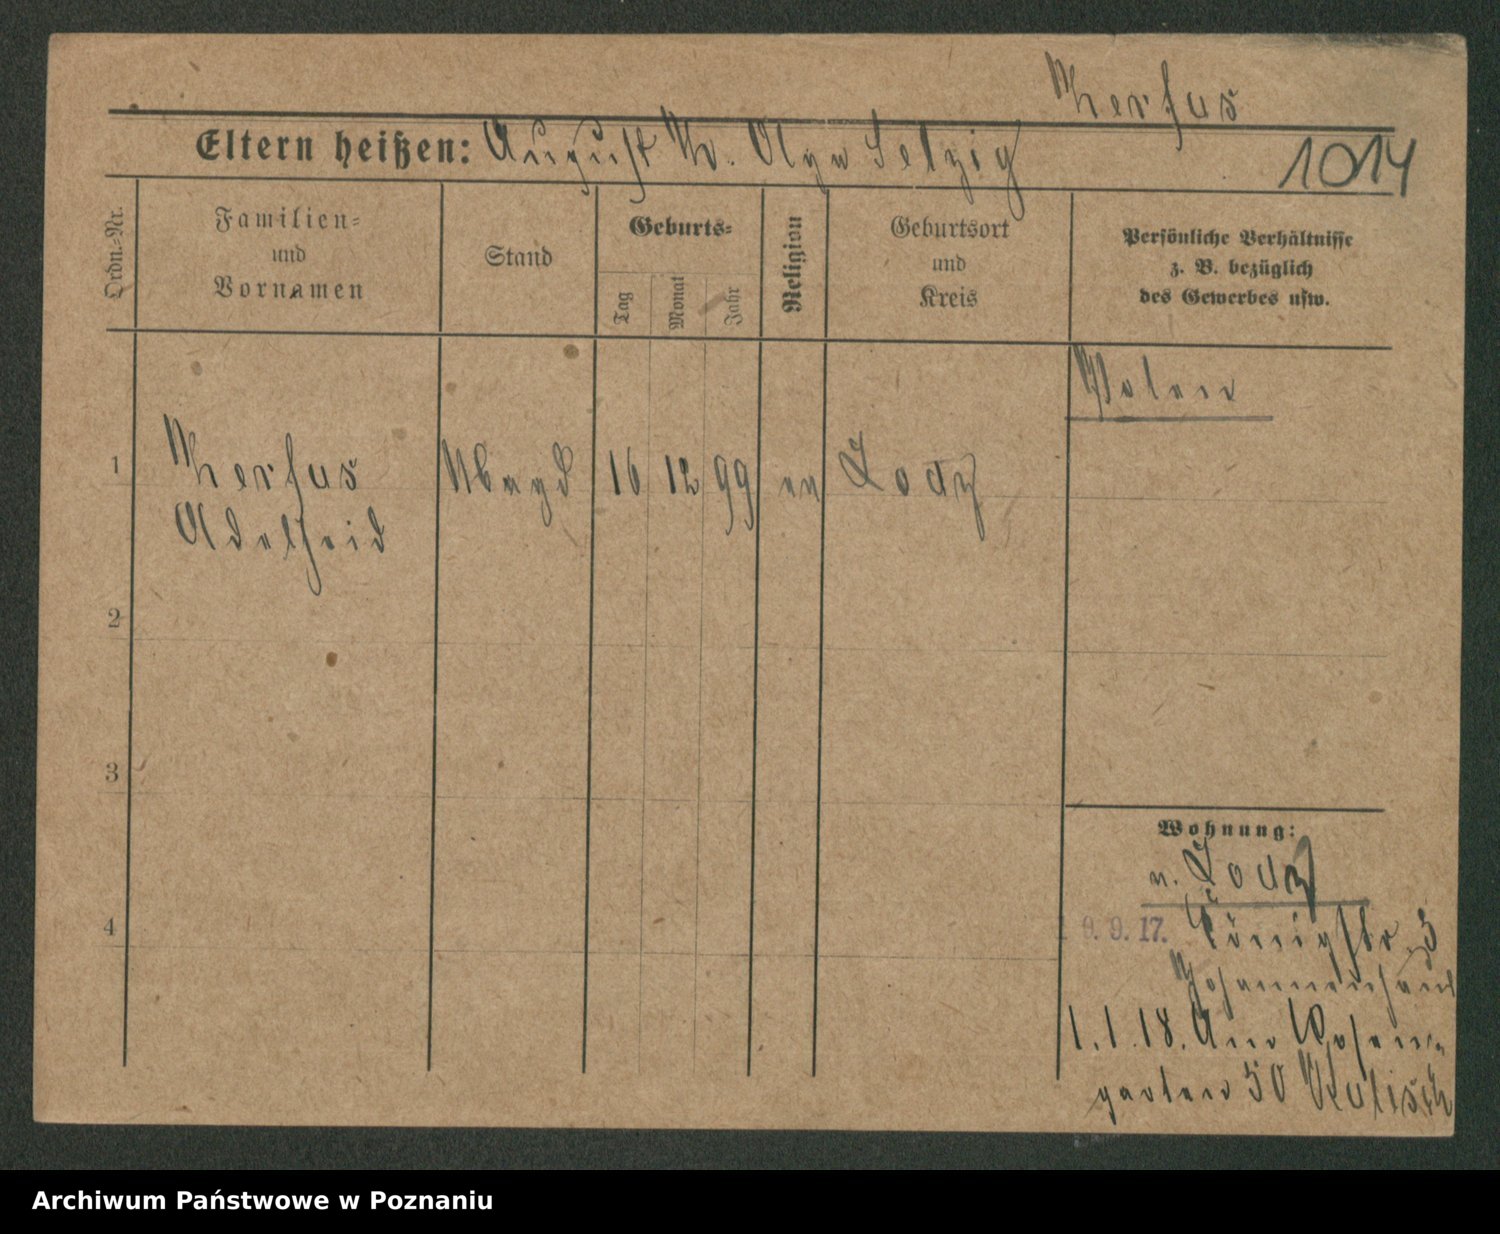 Kerfus
Eltern heißen: August K. Olga Selzig
1014
Ordn.=Nr.
Familien=
und
Vornamen
Stand
Geburts=
Tag
Monat
Jahr
Religion
Geburtsort
und
Kreis
Persönliche Verhältnisse
z. B. bezüglich
des Gewerbes usw.
Polen
1 Kerfus Magd 16 12 99 ev Lodz
Adelheid
2
3
4
Wohnung:
v. Lodz
9. 9. 17. Königstr 5
1.1.18. Am Rosen=
garten 50
Archiwum Państwowe w Poznaniu